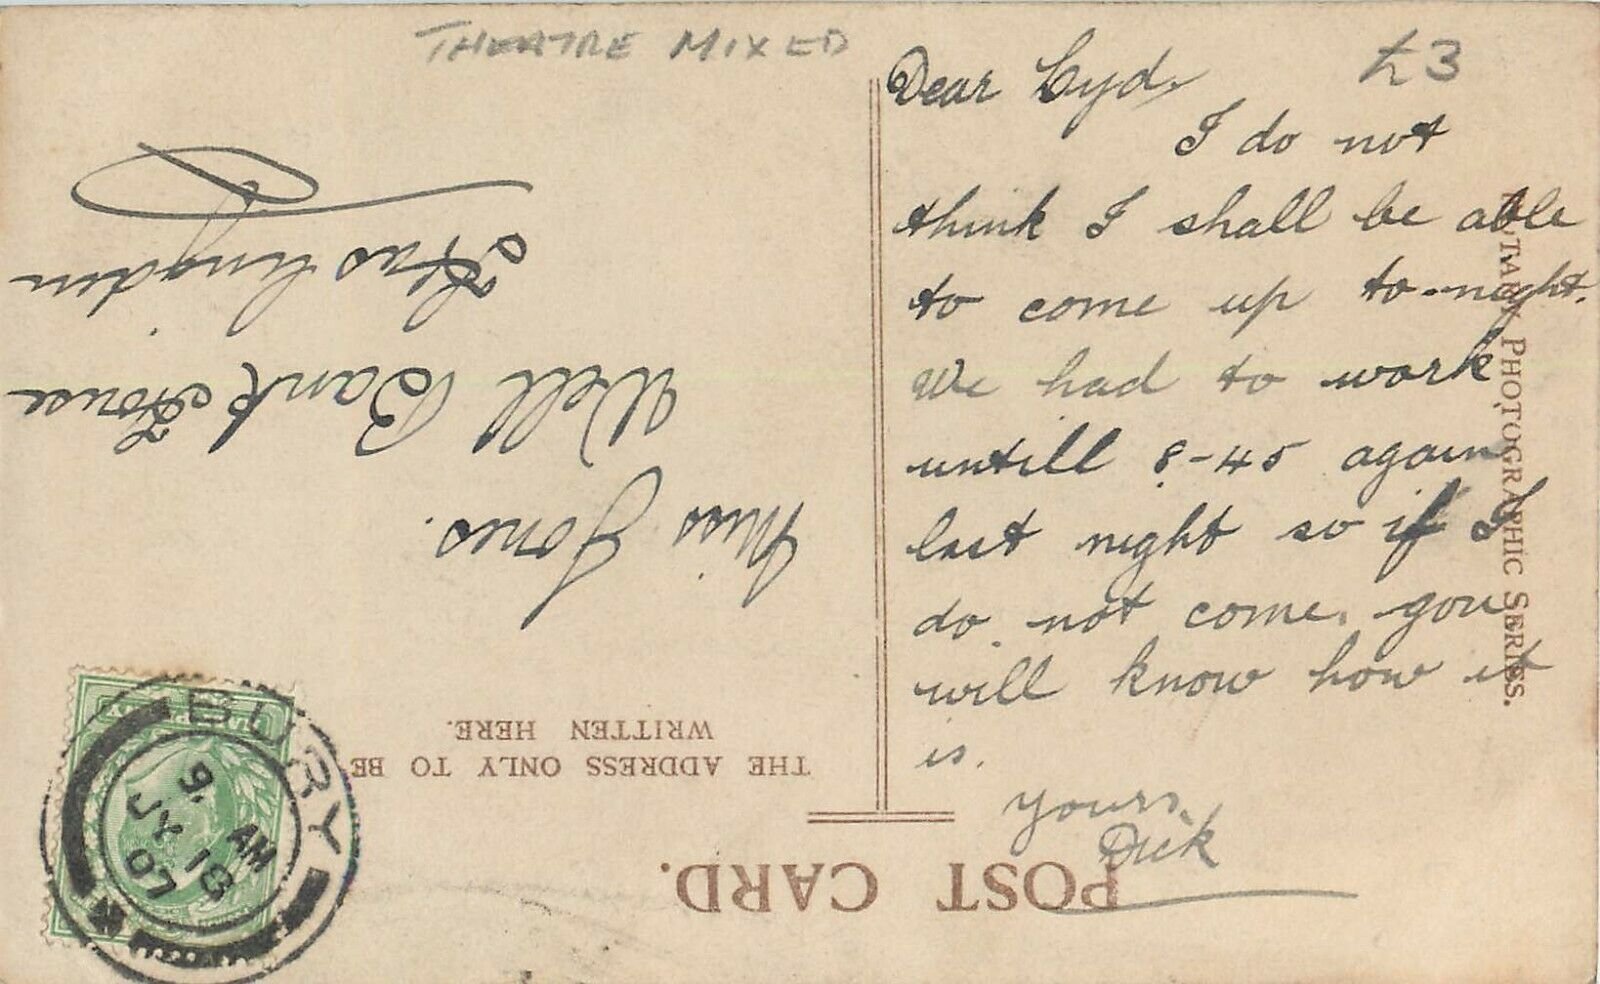 THEATRE MIXED
£3
Dear Cyd,
I do not
think I shall be able
to come up to-night.
We had to work
untill 8-45 again
last night so if I
do not come, you
will know how it
is.
yours,
Dick
Miss Jones.
Well Bank House
Haslingden
POST CARD.
THE ADDRESS ONLY TO BE
WRITTEN HERE.
PHOTOGRAPHIC SERIES.
BURY
9. AM
JY 18
07